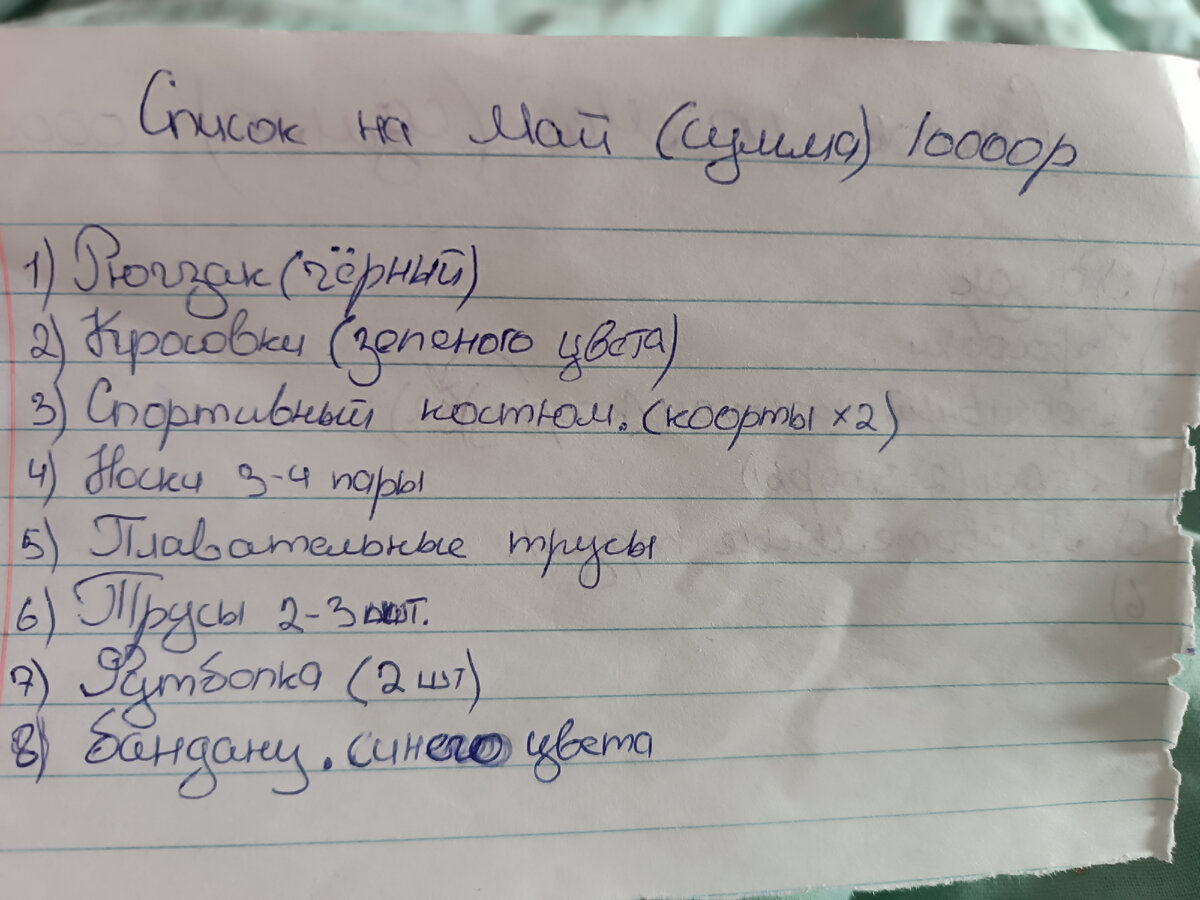 Список на Май (сумма) 10000р
1) Рюгзак (чёрный)
2) Кросовки (зеленого цвета)
3) Спортивный костюм. (коорты x2)
4) Носки 3-4 пары
5) Плавательные трусы
6) Трусы 2-3 шт.
7) Футболка (2 шт)
8) бандану. синего цвета